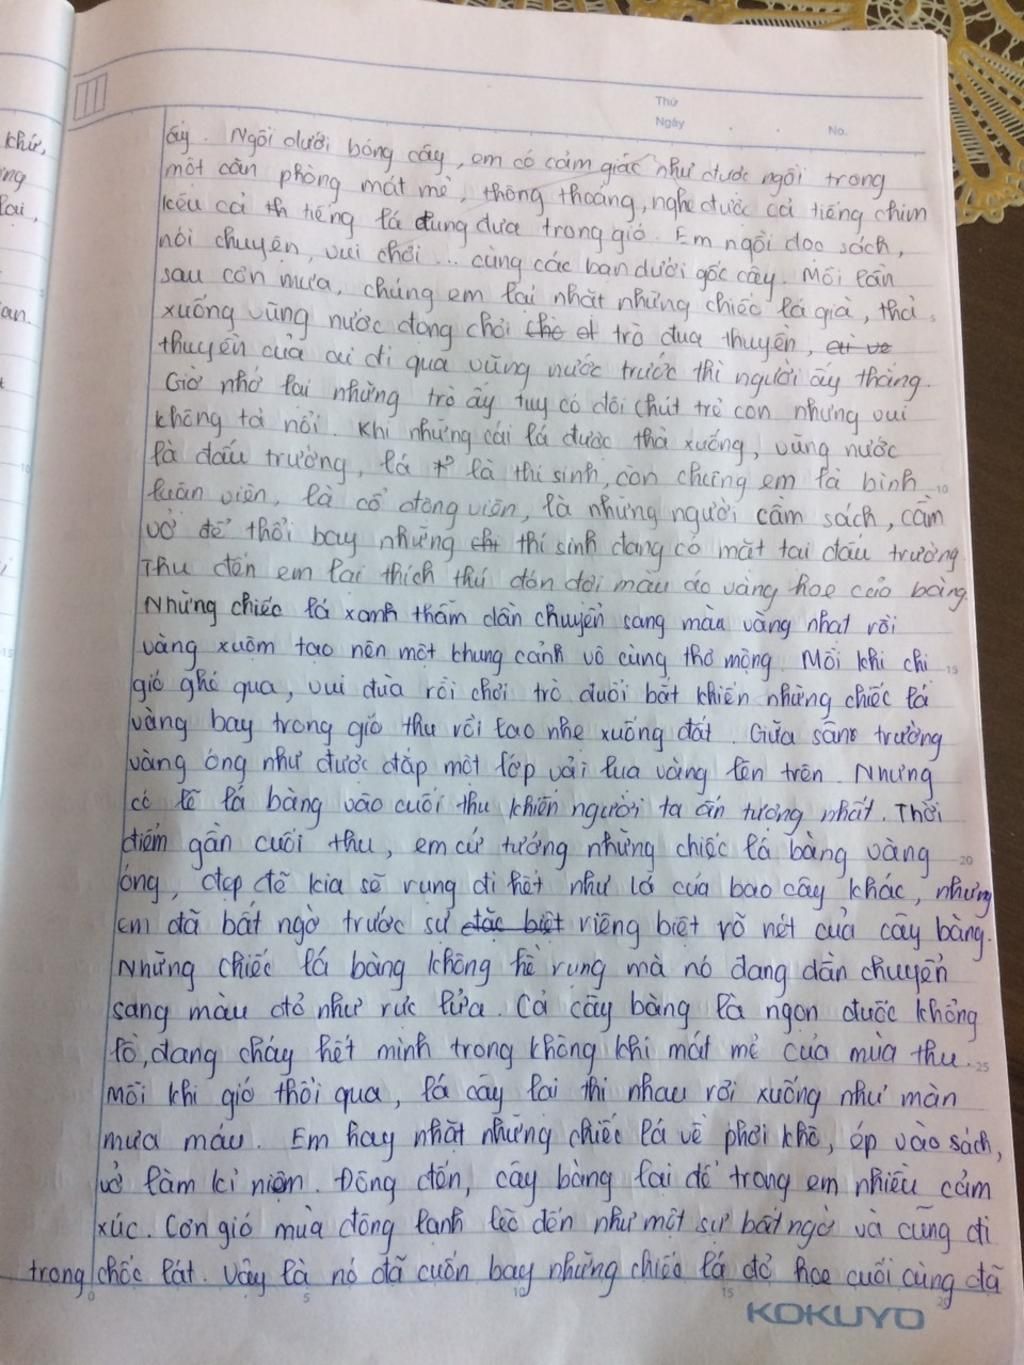 khứ,
ng
lai,
an.
Thứ
Ngày . . No.
ấy. Ngồi dưới bóng cây, em có cảm giác như được ngồi trong
một căn phòng mát mẻ, thông thoáng, nghe được cả tiếng chim
kêu cả th tiếng lá đung đưa trong gió. Em ngồi đọc sách,
nói chuyện, vui chơi ... cùng các bạn dưới gốc cây. Mỗi lần
sau cơn mưa, chúng em lại nhặt những chiếc lá già, thả
xuống vũng nước đọng chơi trò đua thuyền,
thuyền của ai đi qua vũng nước trước thì người ấy thắng.
Giờ nhớ lại những trò ấy tuy có đôi chút trẻ con nhưng vui
không tả nổi. Khi những cái lá được thả xuống, vũng nước
là đấu trường, lá là thí sinh, còn chúng em là bình
luận viên, là cổ động viên, là những người cầm sách, cầm
vở để thổi bay những thí sinh đang có mặt tại đấu trường.
Thu đến em lại thích thú đón đợi màu áo vàng hoe của bàng
Những chiếc lá xanh thẫm dần chuyển sang màu vàng nhạt rồi
vàng xuộm tạo nên một khung cảnh vô cùng thơ mộng. Mỗi khi chị
gió ghé qua, vui đùa rồi chơi trò đuổi bắt khiến những chiếc lá
vàng bay trong gió thu rồi tao nhẹ xuống đất. Giữa sân trường
vàng óng như được đắp một lớp vải lụa vàng lên trên. Nhưng
có lẽ lá bàng vào cuối thu khiến người ta ấn tượng nhất. Thời
điểm gần cuối thu, em cứ tưởng những chiếc lá bàng vàng
óng, đẹp đẽ kia sẽ rụng đi hết như lá của bao cây khác, nhưng
em đã bất ngờ trước sự đặc biệt riêng biệt rõ nét của cây bàng.
Những chiếc lá bàng không hề rụng mà nó đang dần chuyển
sang màu đỏ như rực lửa. Cả cây bàng là ngọn đuốc khổng
lồ, đang cháy hết mình trong không khí mát mẻ của mùa thu.
Mỗi khi gió thổi qua, lá cây lại thi nhau rơi xuống như màn
mưa máu. Em hay nhặt những chiếc lá về phơi khô, ép vào sách,
vở làm kỉ niệm. Đông đến, cây bàng lại để trong em nhiều cảm
xúc. Cơn gió mùa đông lạnh lẽo đến như một sự bất ngờ và cũng đi
trong chốc lát. Vậy là nó đã cuốn bay những chiếc lá đỏ hoe cuối cùng đã
0 5 10 15 20
KOKUYO